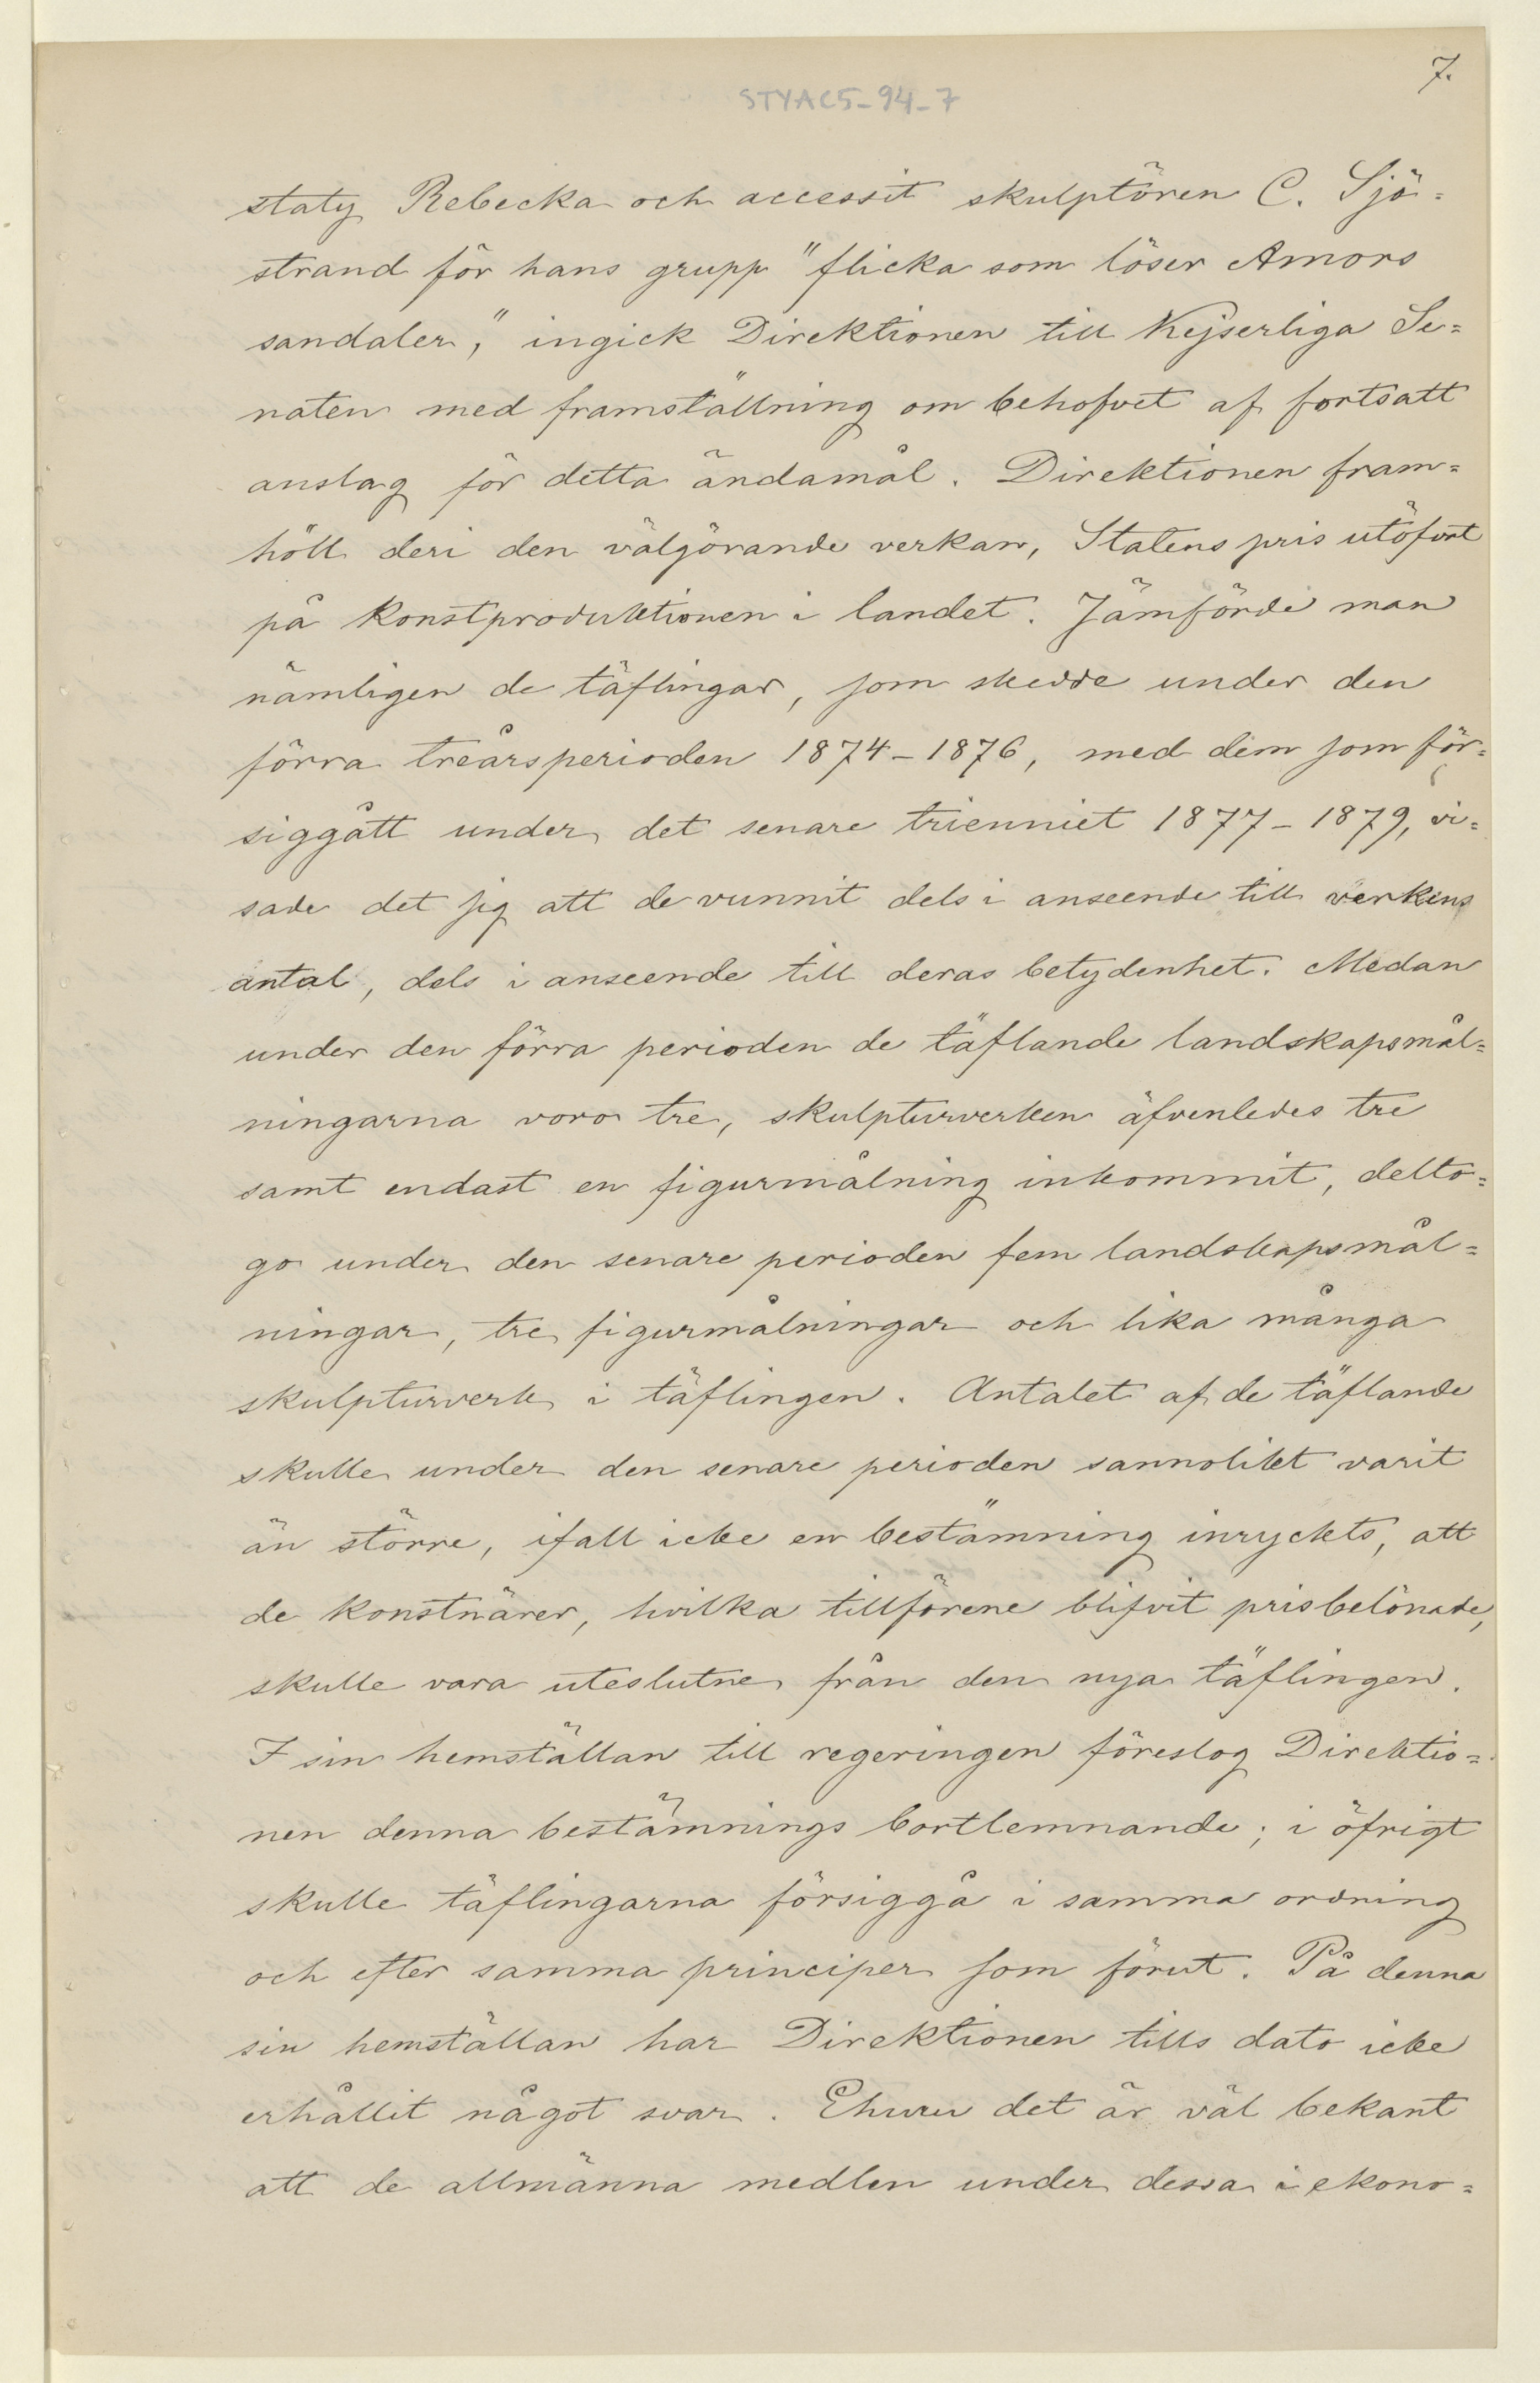 7.
STYAC5-94-7
staty Rebecka och accessit skulptören C. Sjö=
strand för hans grupp "flicka som löser Amors
sandaler," ingick Direktionen till Kejserliga Se=
naten med framställning om behofvet af fortsatt
anslag för detta ändamål. Direktionen fram=
höll deri den välgörande verkan, Statens pris utöfvat
på konstproduktionen i landet. Jämförde man
nämligen de täflingar, som skedde under den
förra treårsperioden 1874-1876, med dem som för=
siggått under det senare trienniet 1877-1879, vi=
sade det sig att de vunnit dels i anseende till verkens
antal, dels i anseende till deras betydenhet. Medan
under den förra perioden de täflande landskapsmål=
ningarna voro tre, skulpturverken äfvenledes tre
samt endast en figurmålning inkommit, delto=
go under den senare perioden fem landskapsmål=
ningar, tre figurmålningar och lika många
skulpturverk i täflingen. Antalet af de täflande
skulle under den senare perioden sannolikt varit
än större, ifall icke en bestämning inryckts, att
de konstnärer, hvilka tillförene blifvit prisbelönade,
skulle vara uteslutne från den nya täflingen.
I sin hemställan till regeringen föreslog Direktio=
nen denna bestämnings bortlemnande; i öfrigt
skulle täflingarna försiggå i samma ordning
och efter samma principer som förut. På denna
sin hemställan har Direktionen tills dato icke
erhållit något svar. Ehuru det är väl bekant
att de allmänna medlen under dessa i ekono=